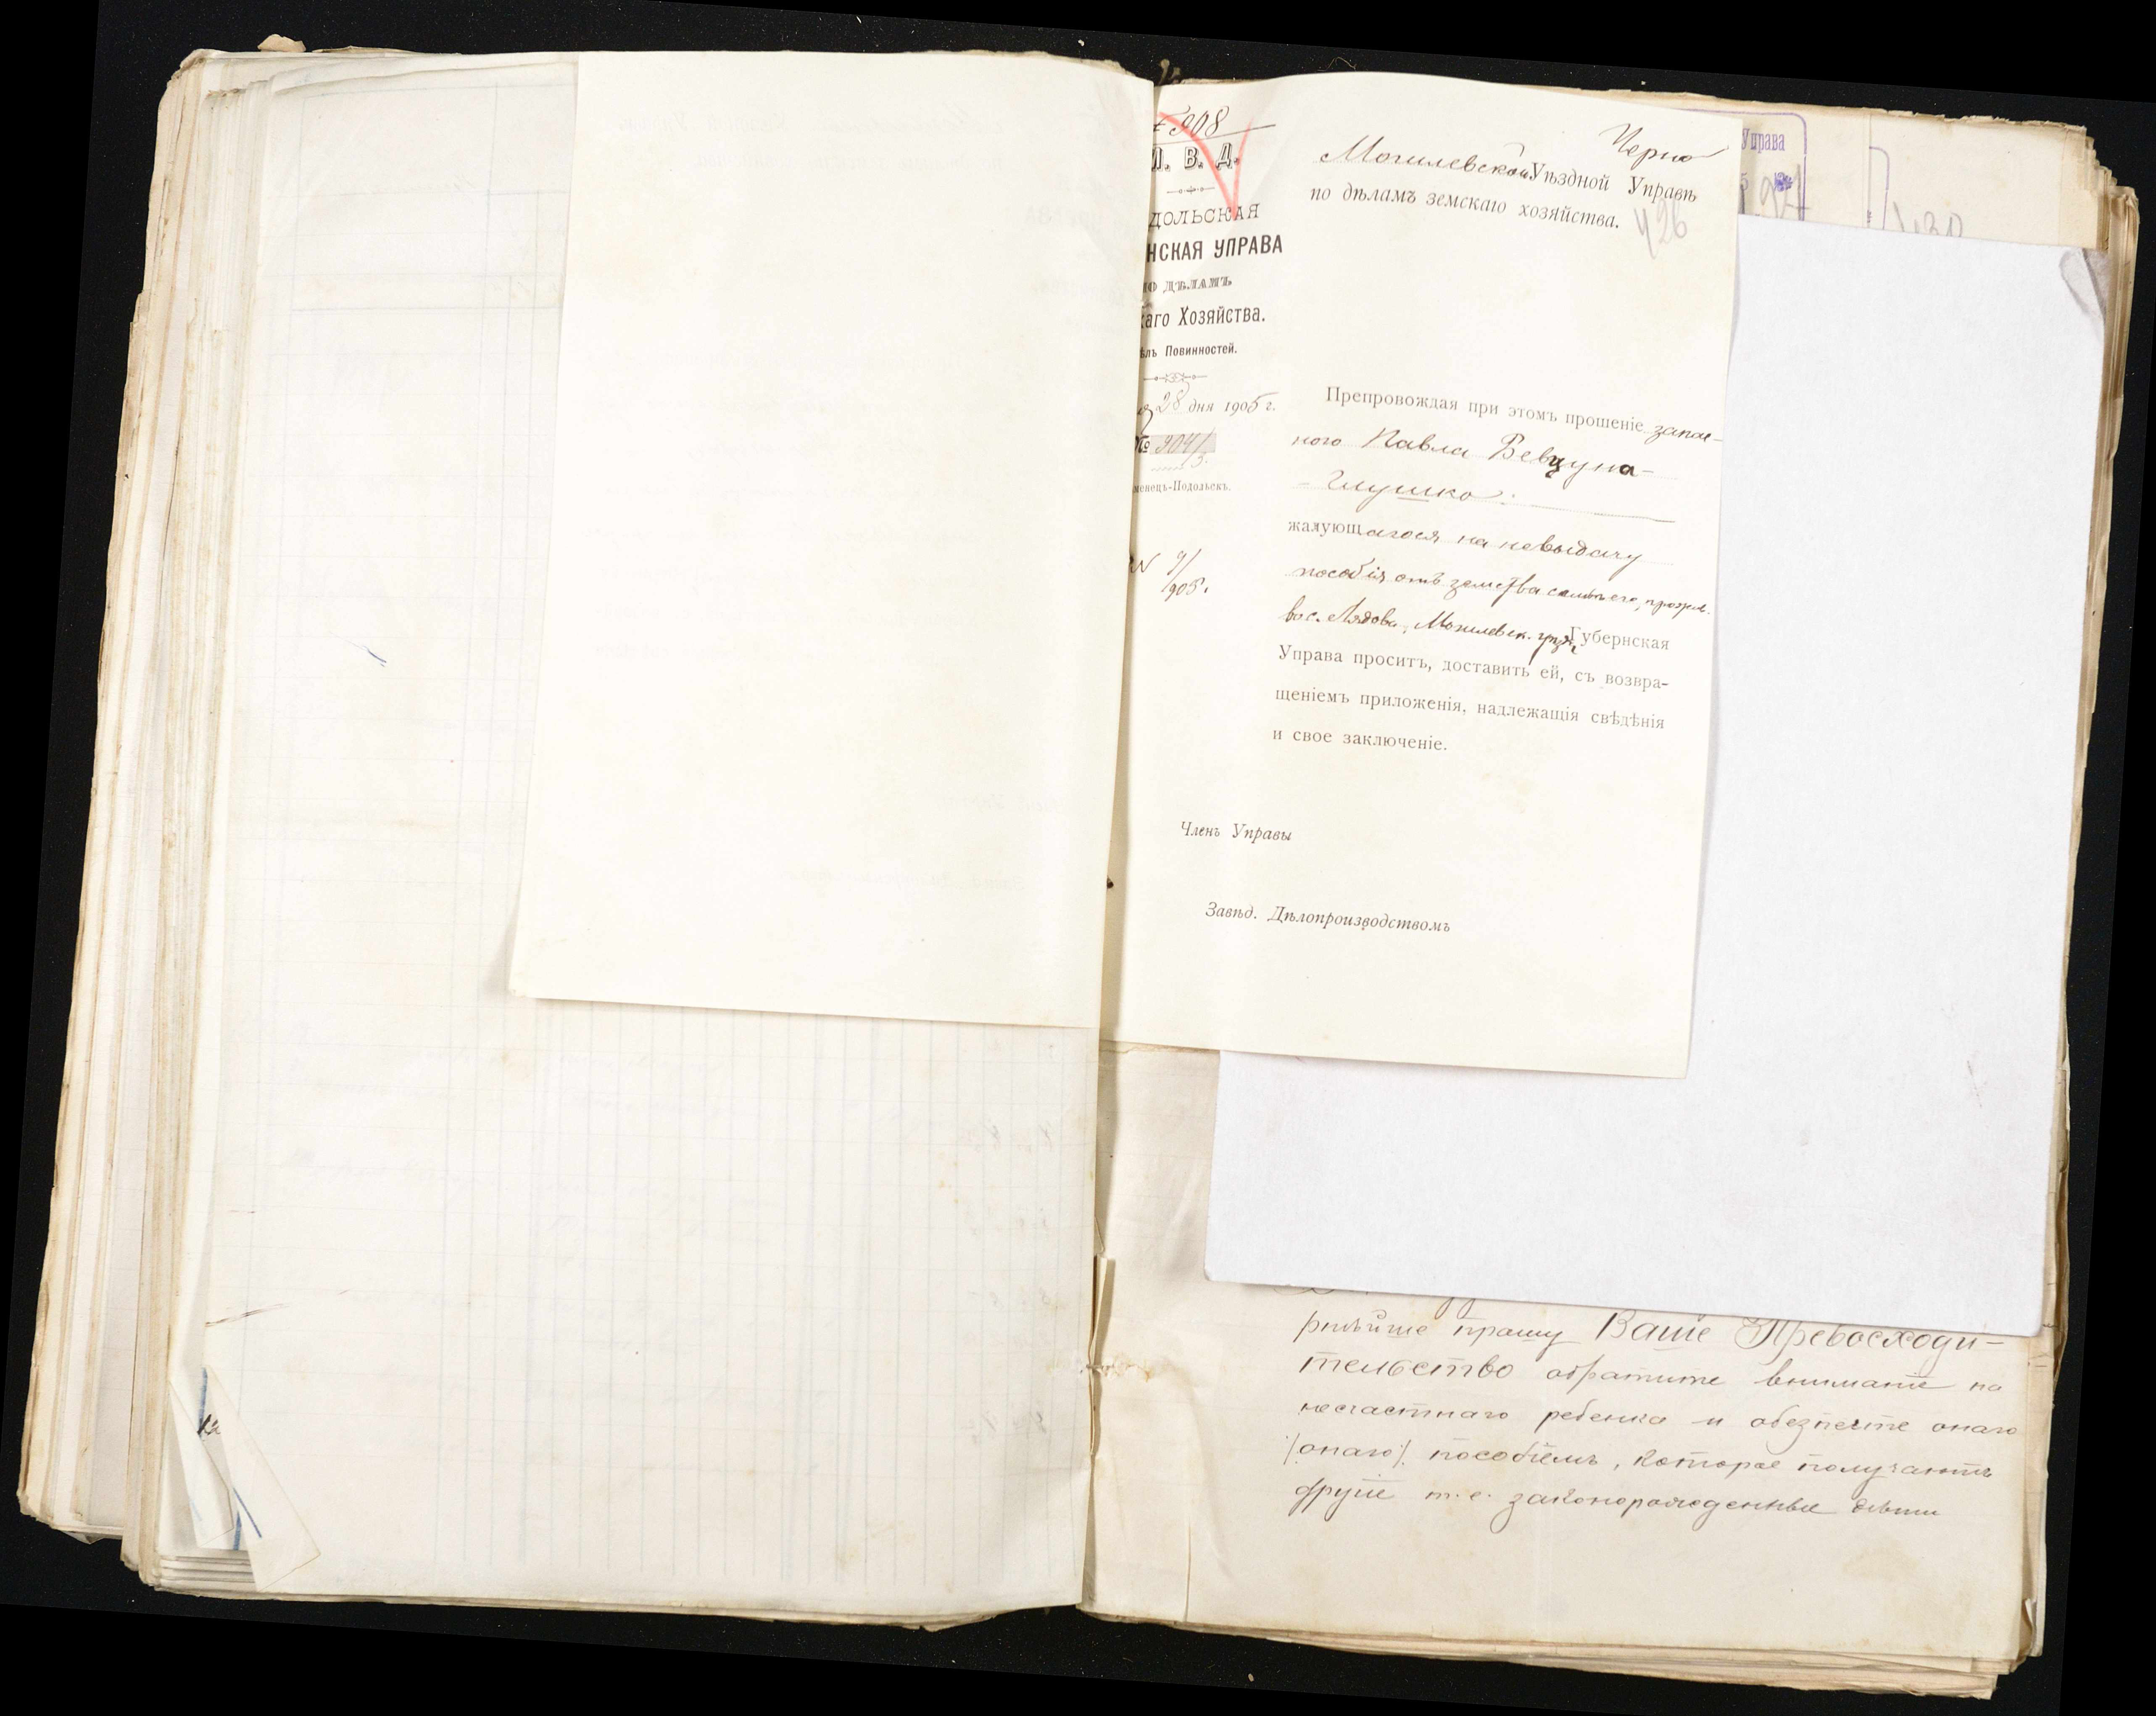 908
М. В. Д.
ДОЛЬСКАЯ
НСКАЯ УПРАВА
ПО ДѢЛАМЪ
каго Хозяйства.
ѣлъ Повинностей.
28 дня 1905 г.
№ 904/3.
менецъ-Подольскъ.
9/905.
Черно
Могилевской Уѣздной Управѣ
по дѣламъ земскаго хозяйства.
426
Препровождая при этомъ прошеніе запас-
ного Павла Вевцуна-
-Глушко
жалующагося на невыдачу
пособія отъ земства семьѣ его, прожив.
въ с. Лядова, Могилевск. уѣз., Губернская
Управа проситъ, доставить ей, съ возвра-
щеніемъ приложенія, надлежащія свѣдѣнія
и свое заключеніе.
Членъ Управы
Завѣд. Дѣлопроизводствомъ
Управа
430
рнѣйше прошу Ваше Превосходи-
тельство обратите вниманіе на
несчастнаго ребенка и обезпечте онаго
/онаго/. пособіемъ, которое получаютъ
другіе т. е. законорожденные дѣти